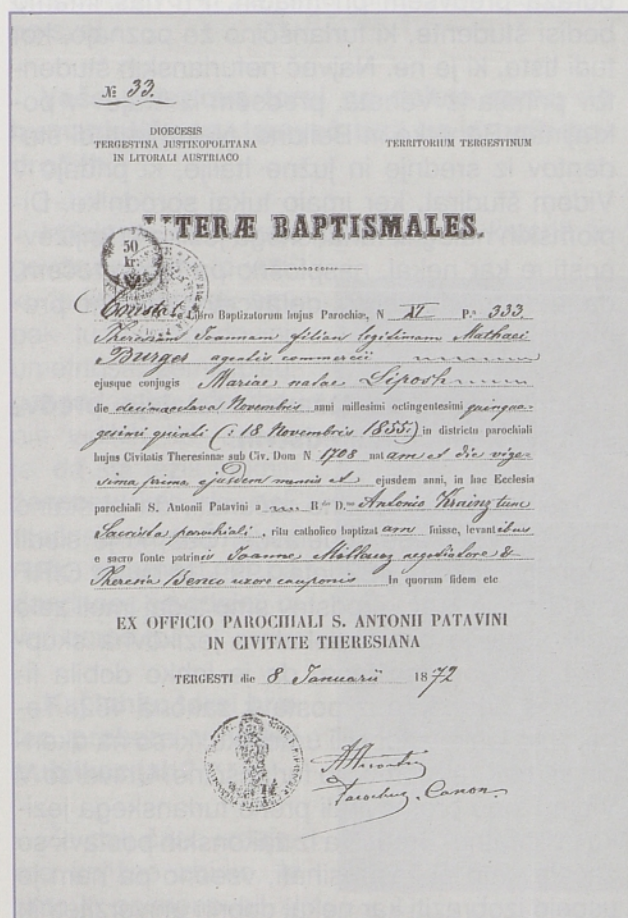 № 33.
DIOECESIS
TERGESTINA JUSTINOPOLITANA
IN LITORALI AUSTRIACO
TERRITORIUM TERGESTINUM
LITERÆ BAPTISMALES.
50
kr.
Constat e Libro Baptizatorum hujus Parochiæ, N XI P. 333.
Theresiam Joannam filiam legitimam Mathaei
Burger agentis commercii
ejusque conjugis Mariae natae Liposh
die decimaoctava Novembris anni millesimi octingentesimi quinqua-
gesimi quinti (: 18 Novembris 1855 :) in districtu parochiali
hujus Civitatis Theresianæ sub Civ. Dom N 1708 natam et die vige-
sima prima ejusdem mensis et ejusdem anni, in hac Ecclesia
parochiali S. Antonii Patavini a R. D. Antonio Krainz tum
Sacrista parochiali, ritu catholico baptizatam fuisse, levantibus
e sacro fonte patrinis Joanne negotiatore &
Theresia Benco uxore cauponis In quorum fidem etc
EX OFFICIO PAROCHIALI S. ANTONII PATAVINI
IN CIVITATE THERESIANA
TERGESTI die 8 Januarii 1872
Parochus, Canon.